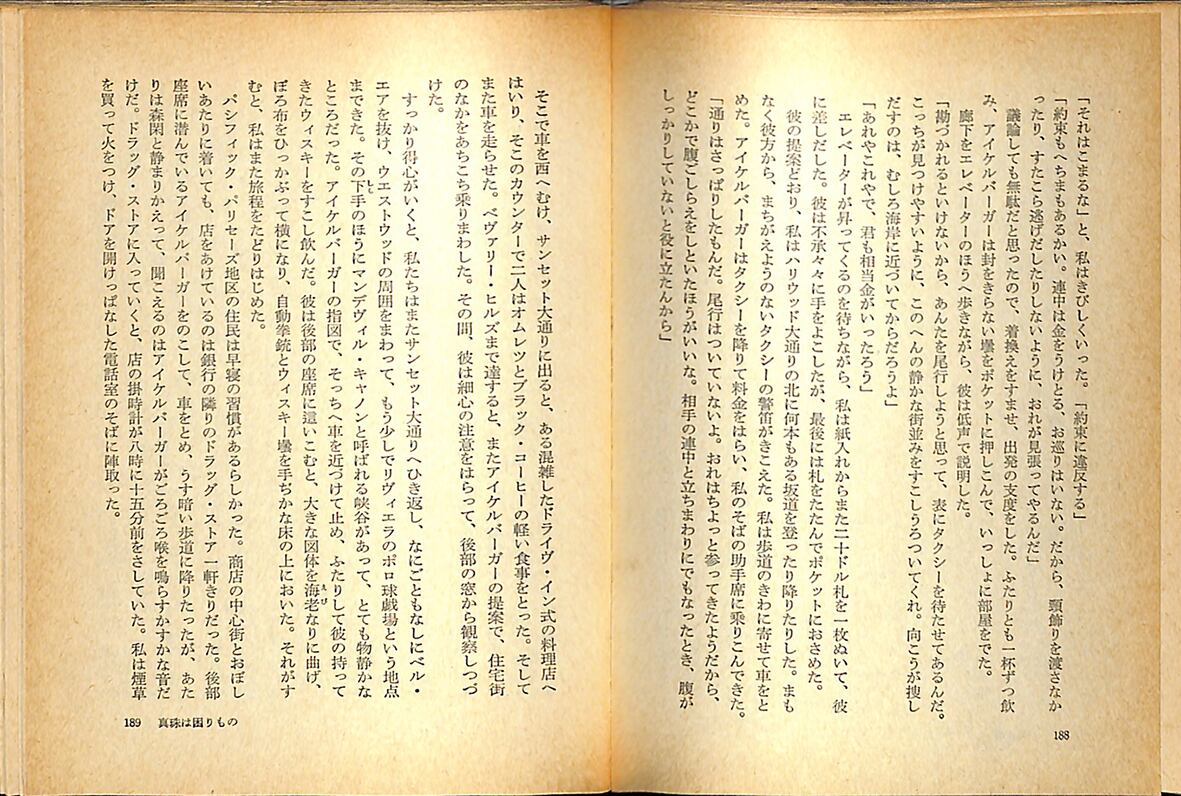 「それはこまるな」と、私はきびしくいった。「約束に違反する」
「約束もへちまもあるかい。連中は金をうけとる、お巡りはいない。だから、頸飾りを渡さなか
ったり、すたこら逃げだしたりしないように、おれが見張ってやるんだ」
議論しても無駄だと思ったので、着換えをすませ、出発の支度をした。ふたりとも一杯ずつ飲
み、アイケルバーガーは封をきらない壜をポケットに押しこんで、いっしょに部屋をでた。
廊下をエレベーターのほうへ歩きながら、彼は低声で説明した。
「勘づかれるといけないから、あんたを尾行しようと思って、表にタクシーを待たせてあるんだ。
こっちが見つけやすいように、このへんの静かな街並みをすこしうろついてくれ。向こうが捜し
だすのは、むしろ海岸に近づいてからだろうよ」
「あれやこれやで、君も相当金がいったろう」
エレベーターが昇ってくるのを待ちながら、私は紙入れからまた二十ドル札を一枚ぬいて、彼
に差しだした。彼は不承々々に手をよこしたが、最後には札をたたんでポケットにおさめた。
彼の提案どおり、私はハリウッド大通りの北に何本もある坂道を登ったり降りたりした。まも
なく彼方から、まちがえようのないタクシーの警笛がきこえた。私は歩道のきわに寄せて車をと
めた。アイケルバーガーはタクシーを降りて料金をはらい、私のそばの助手席に乗りこんできた。
「通りはさっぱりしたもんだ。尾行はついていないよ。おれはちょっと参ってきたようだから、
どこかで腹ごしらえをしといたほうがいいな。相手の連中と立ちまわりにでもなったとき、腹が
しっかりしていないと役に立たんから」
188
そこで車を西へむけ、サンセット大通りに出ると、ある混雑したドライヴ・イン式の料理店へ
はいり、そこのカウンターで二人はオムレツとブラック・コーヒーの軽い食事をとった。そして
また車を走らせた。ベヴァリー・ヒルズまで達すると、またアイケルバーガーの提案で、住宅街
のなかをあちこち乗りまわした。その間、彼は細心の注意をはらって、後部の窓から観察しつづ
けた。
すっかり得心がいくと、私たちはまたサンセット大通りへひき返し、なにごともなしにベル・
エアを抜け、ウエストウッドの周囲をまわって、もう少しでリヴィエラのポロ球戯場という地点
まできた。その下手のほうにマンデヴィル・キャノンと呼ばれる峡谷があって、とても物静かな
ところだった。アイケルバーガーの指図で、そっちへ車を近づけて止め、ふたりして彼の持って
きたウィスキーをすこし飲んだ。彼は後部の座席に這いこむと、大きな図体を海老なりに曲げ、
ぼろ布をひっかぶって横になり、自動拳銃とウィスキー壜を手ぢかな床の上においた。それがす
むと、私はまた旅程をたどりはじめた。
パシフィック・パリセーズ地区の住民は早寝の習慣があるらしかった。商店の中心街とおぼし
いあたりに着いても、店をあけているのは銀行の隣りのドラッグ・ストア一軒きりだった。後部
座席に潜んでいるアイケルバーガーをのこして、車をとめ、うす暗い歩道に降りたったが、あた
りは森閑と静まりかえって、聞こえるのはアイケルバーガーがごろごろ喉を鳴らすかすかな音だ
けだ。ドラッグ・ストアに入っていくと、店の掛時計が八時に十五分前をさしていた。私は煙草
を買って火をつけ、ドアを開けっぱなした電話室のそばに陣取った。
189 真珠は困りもの